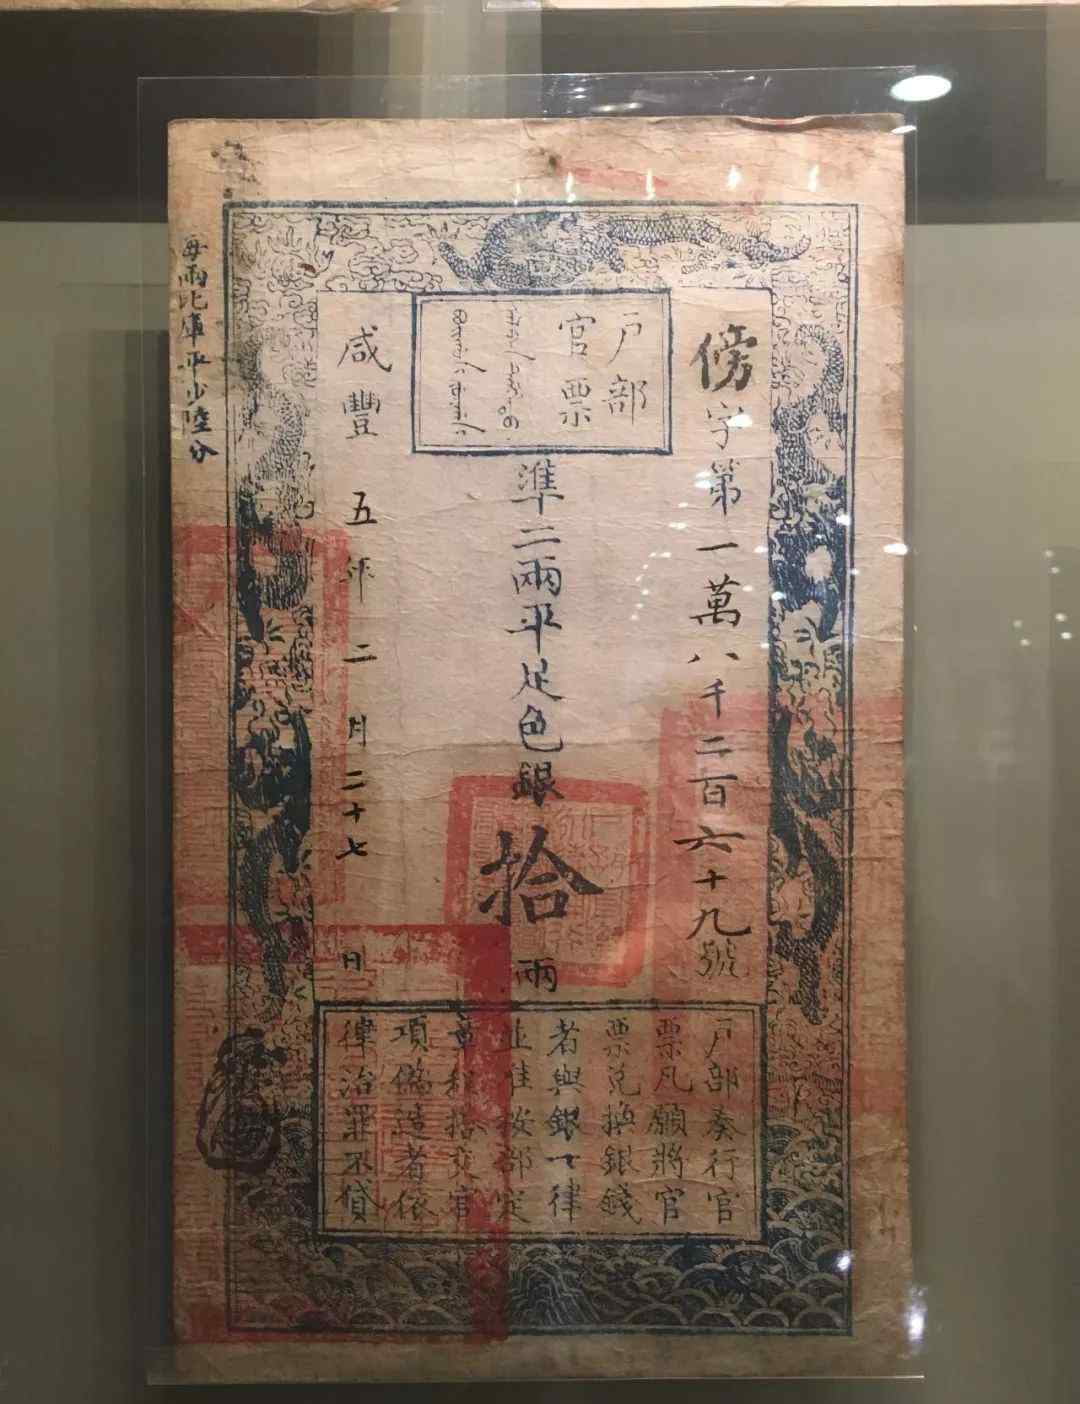 戶部
官票
傍字第一萬八千二百六十九號
準二兩平足色銀拾兩
咸豐五年二月二十七日
戶部奏行官
票凡願將官
票兌換銀錢
者與銀一律
並准按部定
章程搭交官
項偽造者依
律治罪不貸
每兩比庫平少陸分